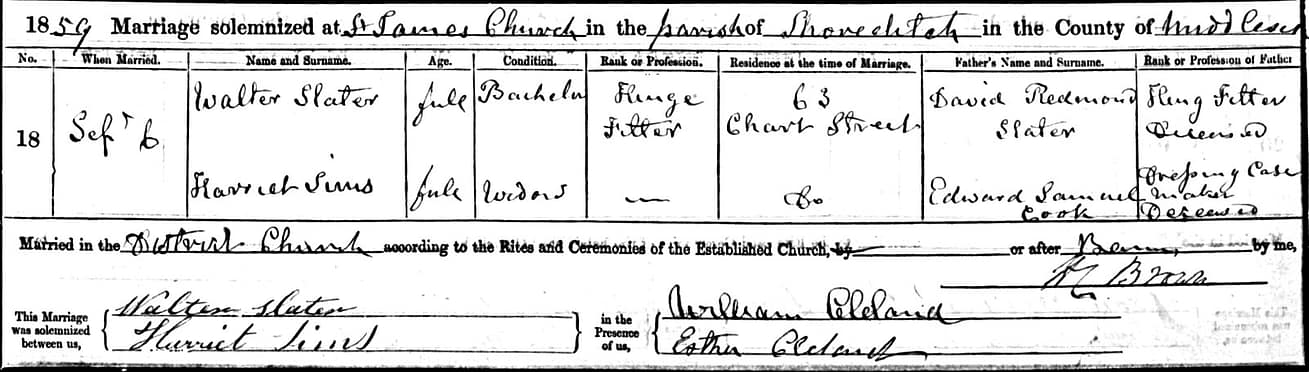 1859 Marriage solemnized at St James Church in the parish of Shoreditch in the County of Middlesex
No. When Married. Name and Surname. Age. Condition. Rank or Profession. Residence at the time of Marriage. Father's Name and Surname. Rank or Profession of Father
18 Sept 6 Walter Slater full Bachelor Hinge Fitter 63 Chart Street David Redmond Slater Hing Fitter Deceased
Harriet Sims full Widow — Do Edward Samuel Cook Dressing Case Maker Deceased
Married in the District Church according to the Rites and Ceremonies of the Established Church, by or after Banns, by me,
Brown
This Marriage was solemnized between us,
Walter Slater
Harriet Sims
in the Presence of us,
William Cleland
Esther Cleland